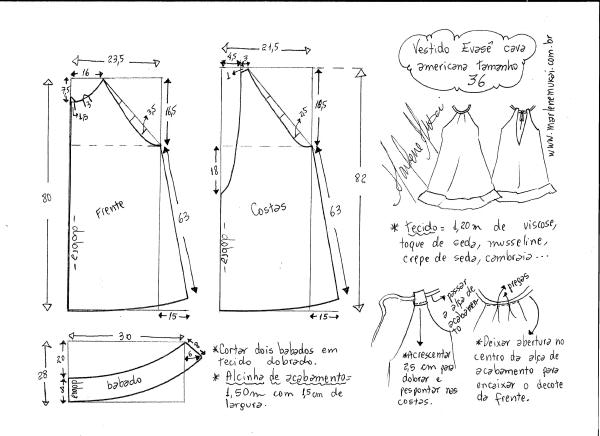 Vestido Evasê cava
americana tamanho
36
www.marlenemukai.com.br
Marlene Mukai
23,5
16
7,5
1,5
3
3,5
16,5
80
Frente
dobra
63
15
21,5
4,5
3
1
2,5
16,5
18
82
Costas
dobra
63
15
* Tecido = 1,20m de viscose,
toque de seda, musseline,
crepe de seda, cambraia...
30
20
28
8
6
dobra
babado
*Cortar dois babados em
tecido dobrado.
* Alcinha de acabamento=
1,50m com 1,5cm de
largura.
passar
a alça de
acabamen-
to
*Acrescentar
2,5 cm para
dobrar e
pespontar nas
costas.
pregas
*Deixar abertura no
centro da alça de
acabamento para
encaixar o decote
da frente.